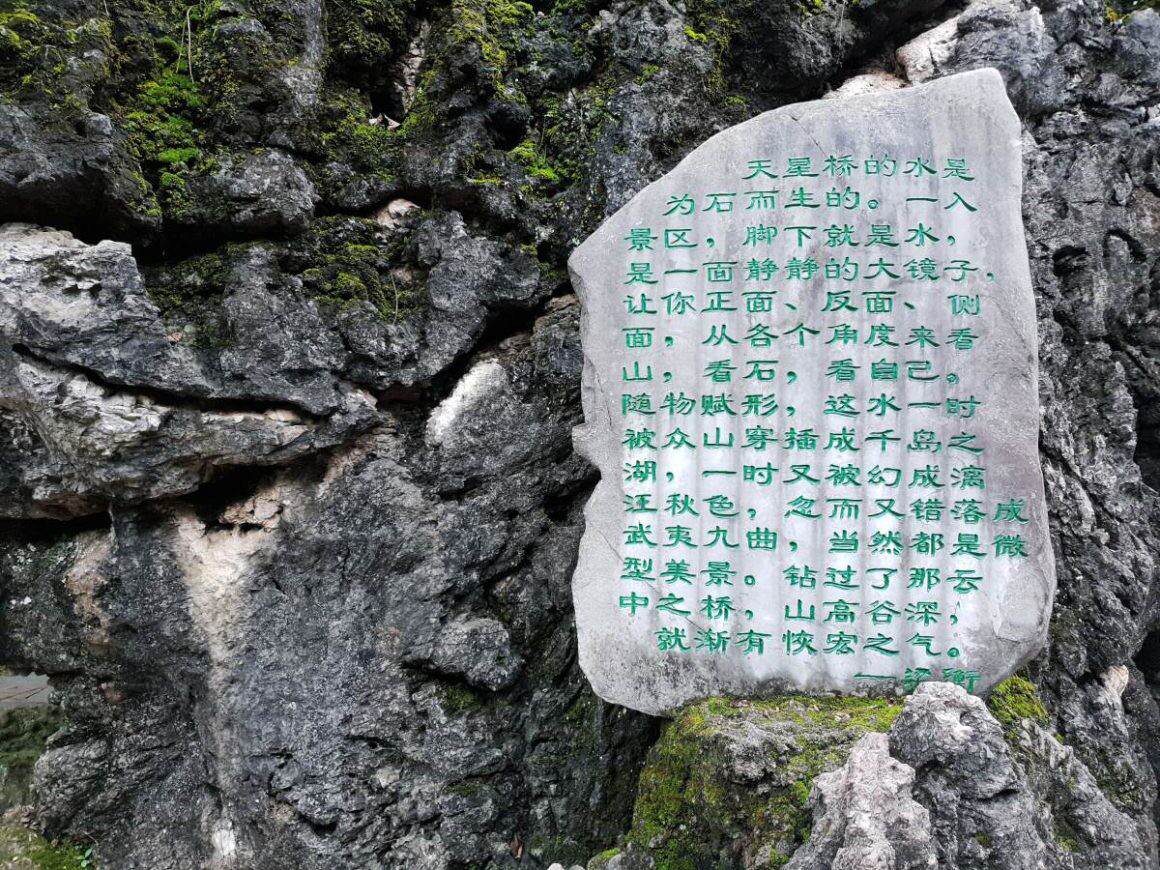 天星桥的水是
为石而生的。一入
景区，脚下就是水，
是一面静静的大镜子，
让你正面、反面、侧
面，从各个角度来看
山，看石，看自己。
随物赋形，这水一时
被众山穿插成千岛之
湖，一时又被幻成漓
汪秋色，忽而又错落成
武夷九曲，当然都是微
型美景。钻过了那云
中之桥，山高谷深，
就渐有恢宏之气。
——梁衡